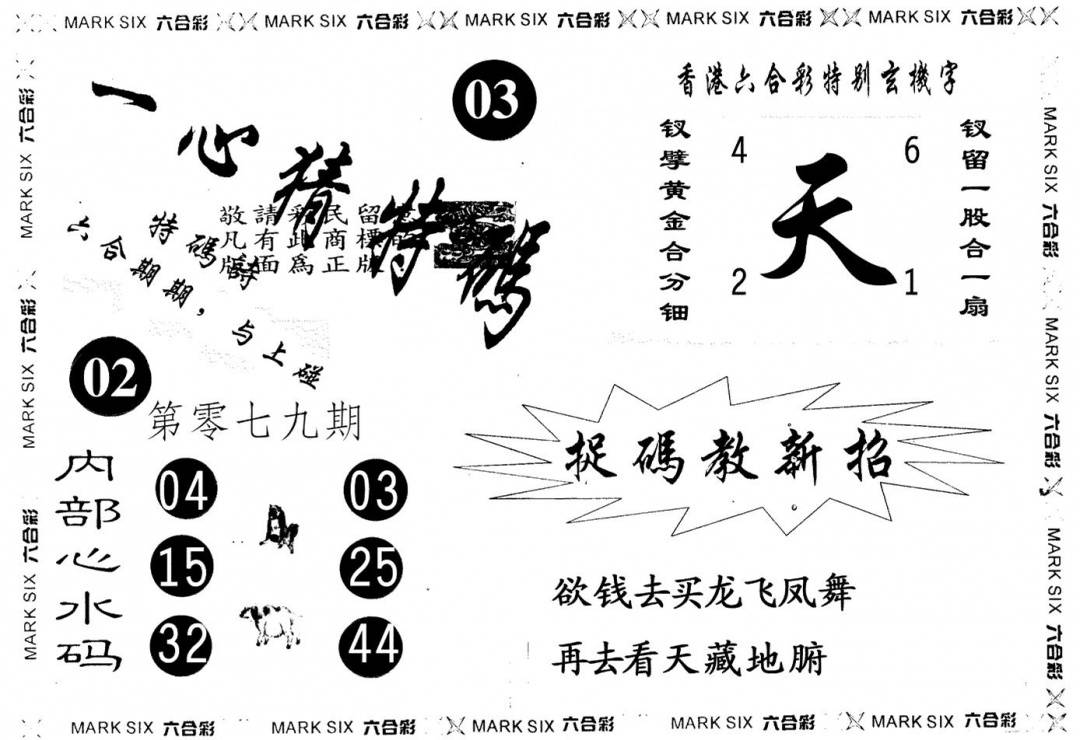 MARK SIX 六合彩 MARK SIX 六合彩 MARK SIX 六合彩 MARK SIX 六合彩 MARK SIX 六合彩
MARK SIX 六合彩
MARK SIX 六合彩
MARK SIX 六合彩
一心猜特碼
03
敬請彩民留意
凡有此商標的
版面為正版
特碼詩
六合期期，与上碰
02
第零七九期
内部心水码
04 03
15 25
32 44
香港六合彩特别玄機字
钗擘黄金合分钿
4 6
天
2 1
钗留一股合一扇
捉碼教新招
欲钱去买龙飞凤舞
再去看天藏地腑
MARK SIX 六合彩
MARK SIX 六合彩
MARK SIX 六合彩
MARK SIX 六合彩 MARK SIX 六合彩 MARK SIX 六合彩 MARK SIX 六合彩 MARK SIX 六合彩